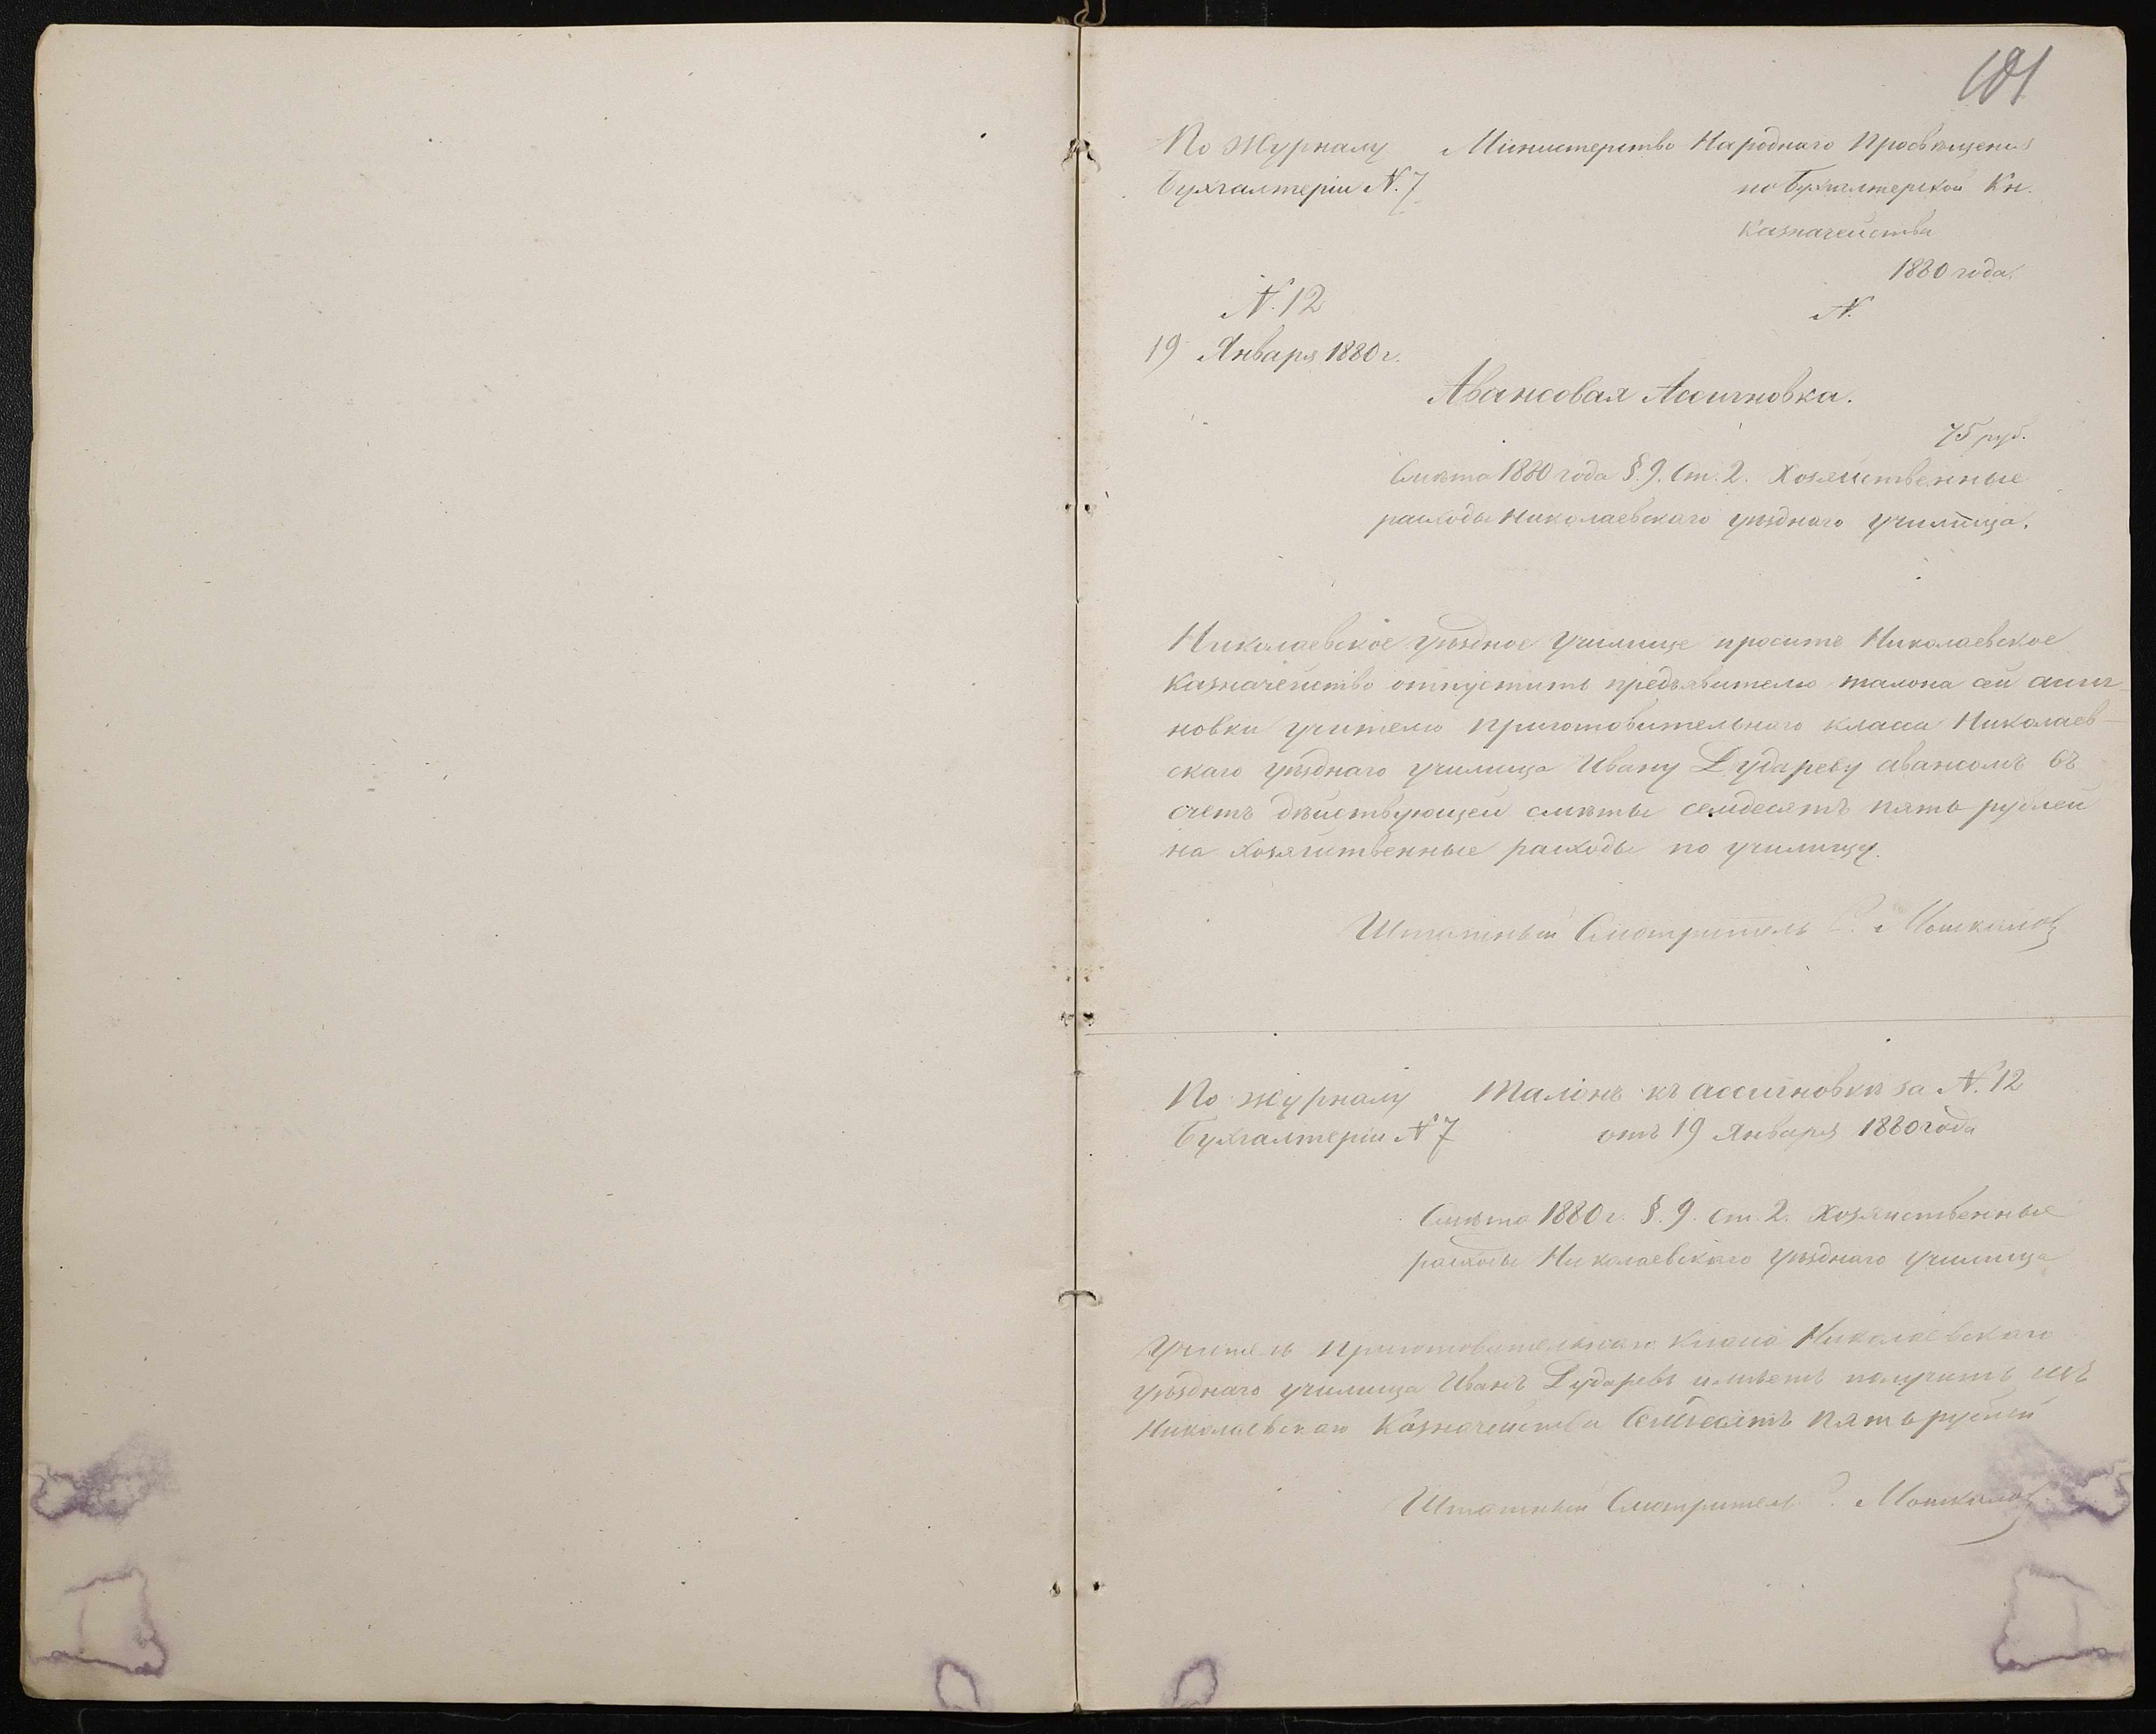 101
По Журналу Министерство Народнаго Просвѣщенія
Бухгалтеріи N. 7 по Бухгалтерской Кн.
Казначейства
1880 года.
N. 12 N.
19 Января 1880 г.
Авансовая Ассигновка.
75 руб.
Смѣта 1880 года §. 9. Ст. 2. Хозяйственные
расходы Николаевскаго уѣзднаго училища.
Николаевское уѣздное училище проситъ Николаевское
Казначейство отпустить предъявителю талона сей ассиг-
новки учителю приготовительнаго класса Николаев-
скаго уѣзднаго училища Ивану Дудареву авансомъ въ
счетъ дѣйствующей смѣты семдесятъ пять рублей
на хозяйственные расходы по училищу.
Штатный Смотритель
По журналу Талонъ къ ассигновкѣ за N. 12
Бухгалтеріи N 7 отъ 19 Января 1880 года
Смѣта 1880 г. §. 9. Ст. 2. Хозяйственные
расходы Николаевскаго уѣзднаго училища
Учитель приготовительнаго класса Николаевскаго
уѣзднаго училища Иванъ Дударевъ имѣетъ получить изъ
Николаевскаго Казначейства Семдесятъ пять рублей
Штатный Смотритель